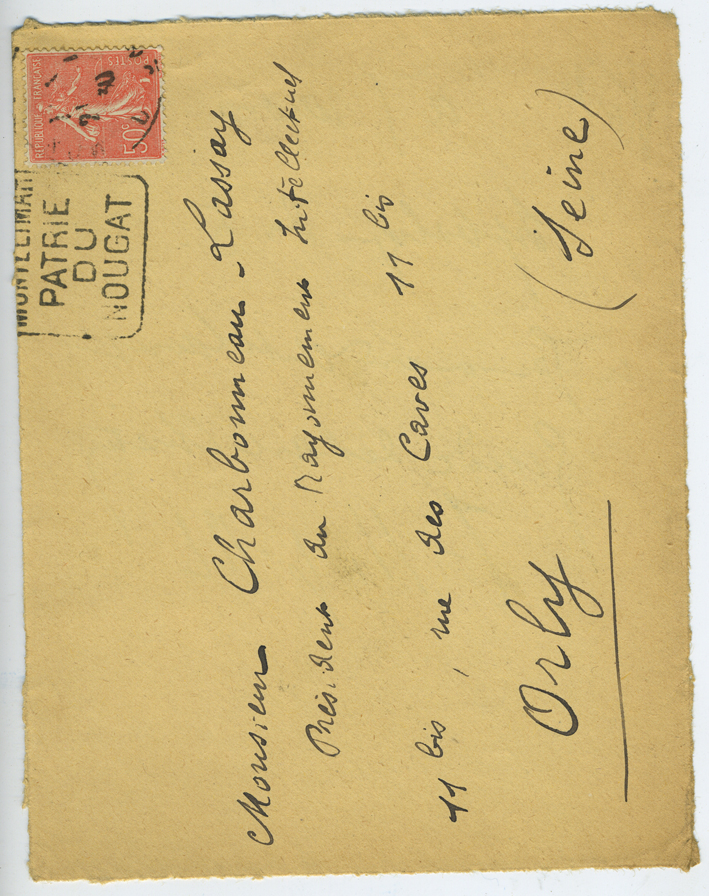 RÉPUBLIQUE FRANÇAISE
POSTES
50c
MONTELIMAR
PATRIE
DU
NOUGAT
Monsieur Charbonneau-Lassay
Président du Rayonnement Intellectuel
11 bis, rue des Caves 11 bis
Orly (Seine)